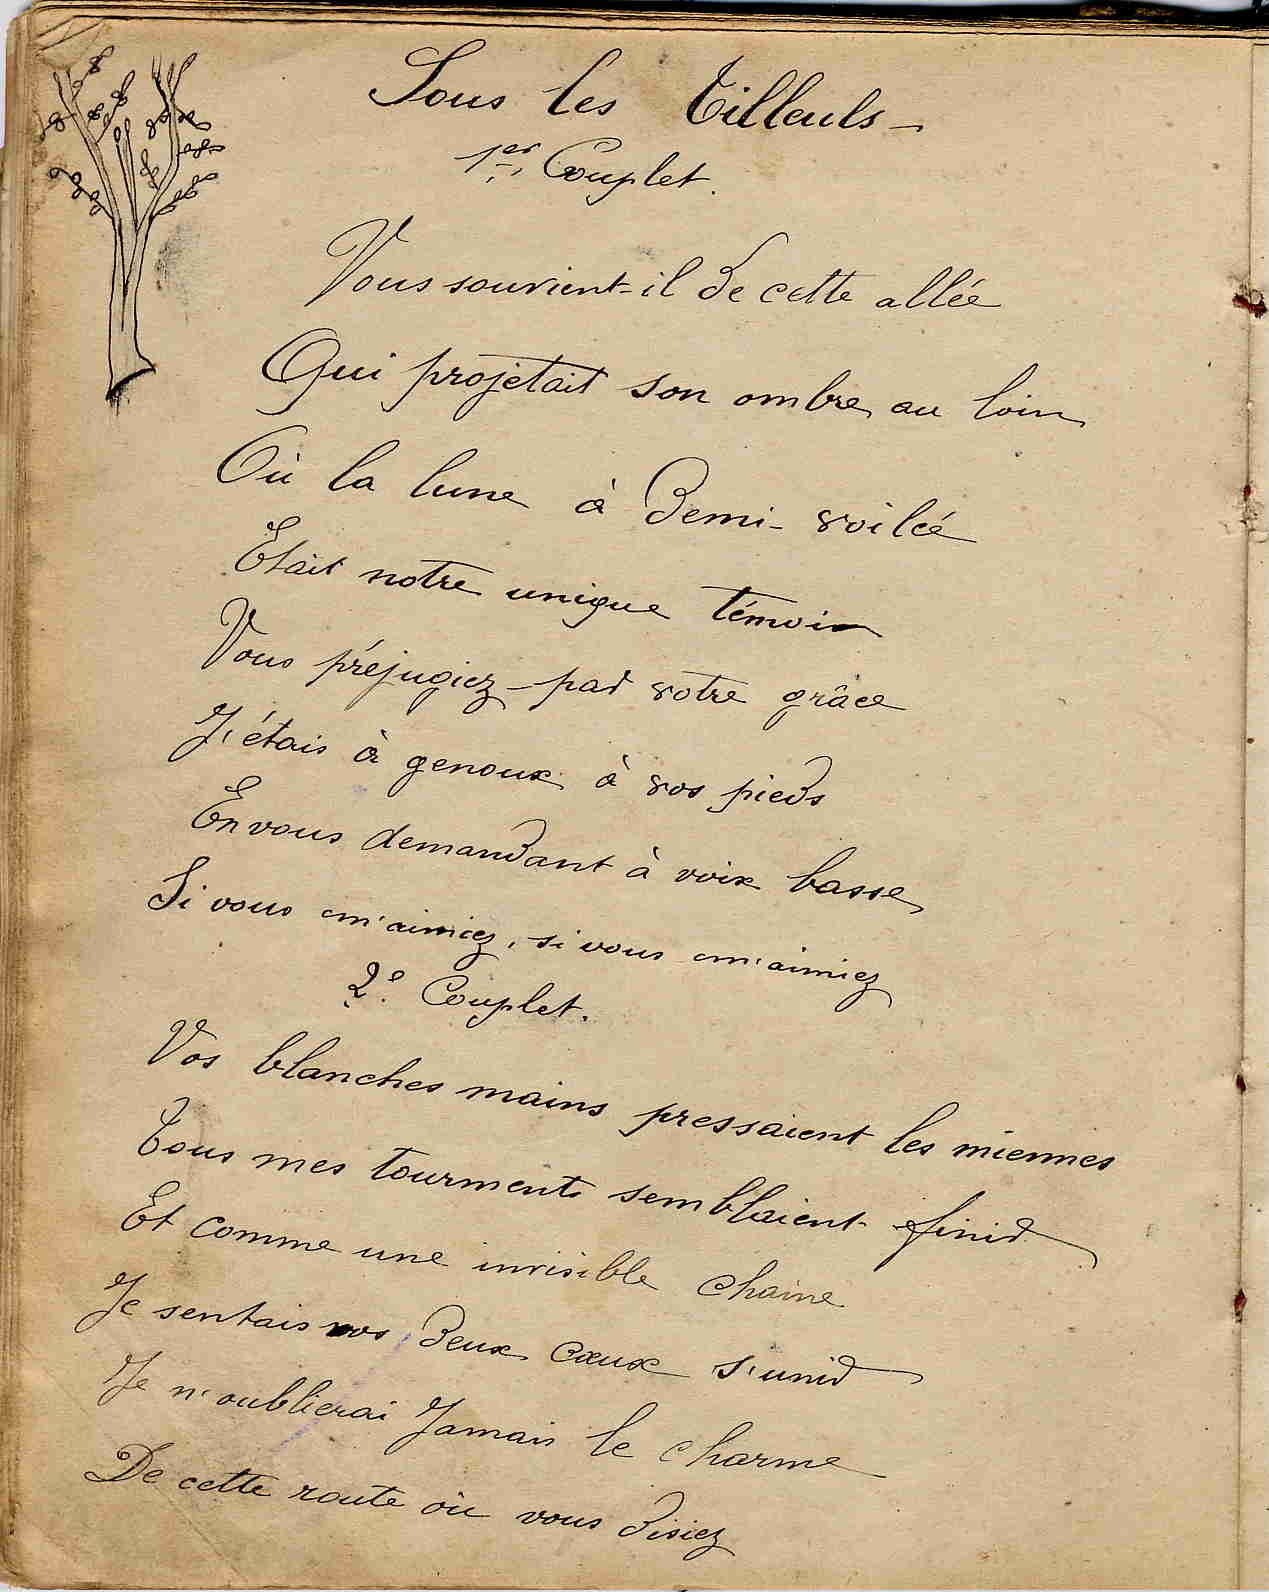 Sous les Tilleuls -
1er Couplet.
Vous souvient-il de cette allée
Qui projetait son ombre au loin
Où la lune à demi-voilée
Etait notre unique témoin
Vous préjugiez par votre grâce
J'étais à genoux à vos pieds
En vous demandant à voix basse
Si vous m'aimiez, si vous m'aimiez
2e Couplet.
Vos blanches mains pressaient les miennes
Tous mes tourments semblaient finir
Et comme une invisible chaine
Je sentais nos deux cœux s'unir
Je n'oublierai Jamais le charme
De cette route où vous disiez